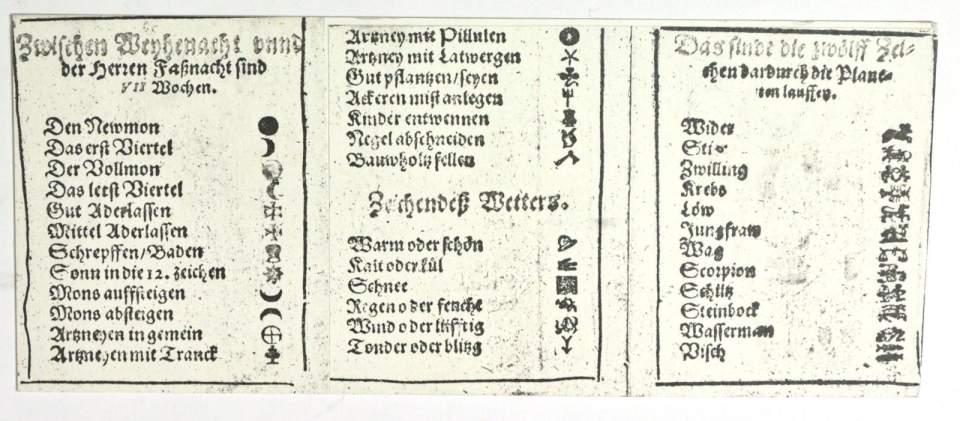 Zwischen Weyhenacht vnnd
der Herren Faßnacht sind
VII Wochen.
Den Newmon
Das erst Viertel
Der Vollmon
Das letst Viertel
Gut Aderlassen
Mittel Aderlassen
Schrepffen/Baden
Sonn in die 12. zeichen
Mons auffsteigen
Mons absteigen
Artzneyen in gemein
Artzneyen mit Tranck
Artzney mit Pillulen
Artzney mit Latwergen
Gut pflantzen/seyen
Ackeren mist anlegen
Kinder entwennen
Negel abschneiden
Bauwholtz fellen
Zeichen deß Wetters.
Warm oder schön
Kalt oder kül
Schnee
Regen oder feucht
Wind oder lüfftig
Tonder oder blitzg
Das sinde die zwölff Zei-
chen dardurch die Plane-
ten lauffen.
Wider
Stier
Zwilling
Krebs
Löw
Jungfraw
Wag
Scorpion
Schütz
Steinbock
Wasserman
Visch